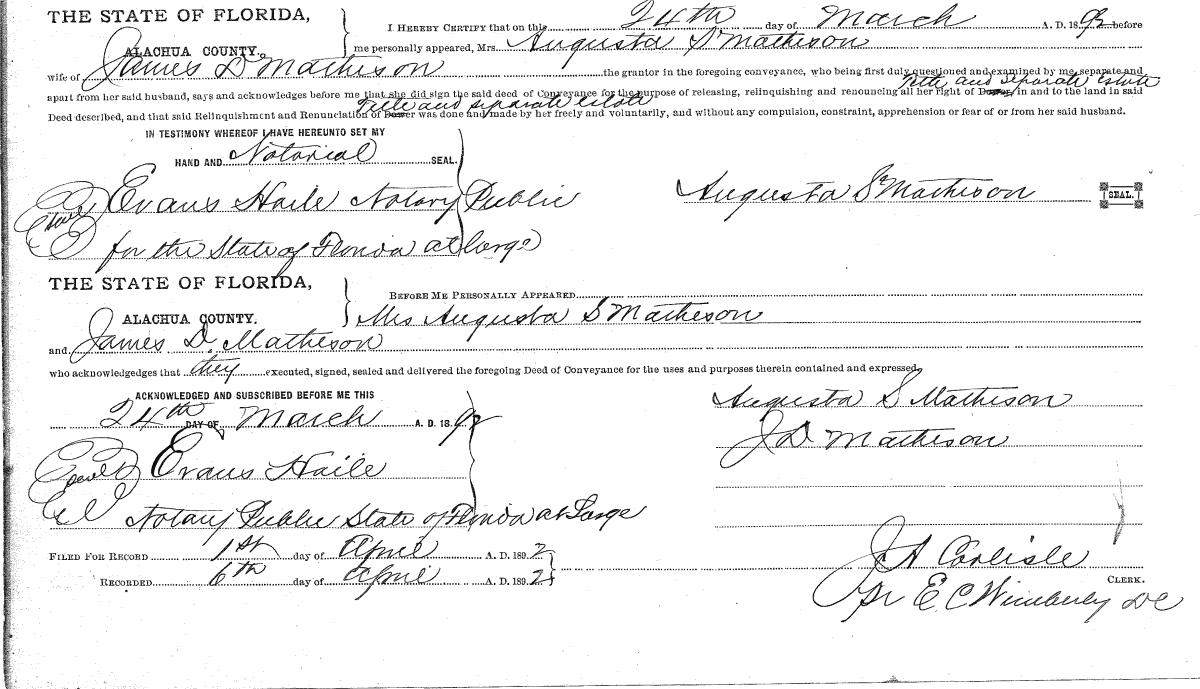 THE STATE OF FLORIDA,
I HEREBY CERTIFY that on this 24th day of March A. D. 1892 before
ALACHUA COUNTY.
me personally appeared, Mrs Augusta S Matheson
wife of James D Matheson the grantor in the foregoing conveyance, who being first duly questioned and examined by me separate and
title and separate estate
apart from her said husband, says and acknowledges before me that she did sign the said deed of Conveyance for the purpose of releasing, relinquishing and renouncing all her right of Dower, in and to the land in said
Title and separate estate
Deed described, and that said Relinquishment and Renunciation of Dower was done and made by her freely and voluntarily, and without any compulsion, constraint, apprehension or fear of or from her said husband.
IN TESTIMONY WHEREOF I HAVE HEREUNTO SET MY
HAND AND Notarial SEAL.
Evans Haile Notary Public
Augusta S Matheson
SEAL.
for the State of Florida at Large
THE STATE OF FLORIDA,
BEFORE ME PERSONALLY APPEARED
ALACHUA COUNTY.
Mrs Augusta S Matheson
and James D. Matheson
who acknowledgedges that they executed, signed, sealed and delivered the foregoing Deed of Conveyance for the uses and purposes therein contained and expressed.
ACKNOWLEDGED AND SUBSCRIBED BEFORE ME THIS
24th DAY OF March A. D. 1892
Augusta S Matheson
J D Matheson
Seal
Evans Haile
Notary Public State of Florida at Large
FILED FOR RECORD 1st day of April A. D. 1892
RECORDED 6th day of April A. D. 1892
J A Carlisle
CLERK.
Pr E C Wimberly DC